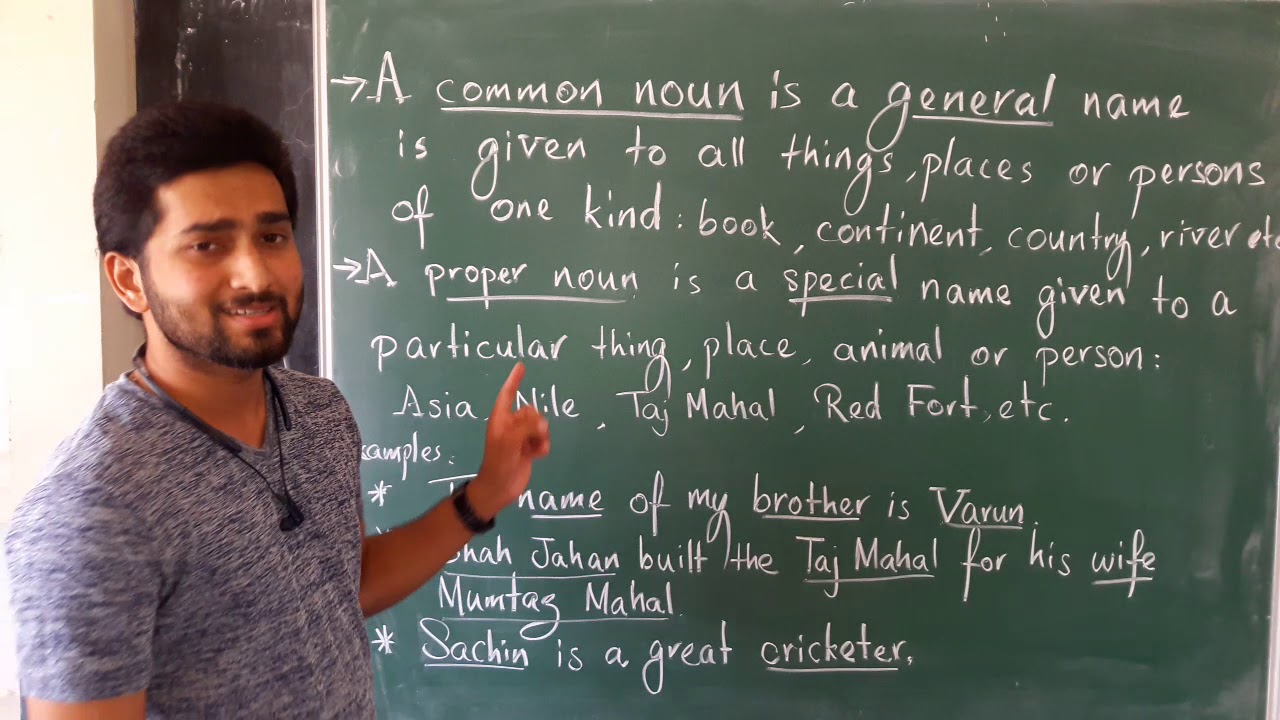 → A common noun is a general name
is given to all things, places or persons
of one kind: book, continent, country, river etc
→ A proper noun is a special name given to a
particular thing, place, animal or person:
Asia, Nile, Taj Mahal, Red Fort, etc.
xamples:
* name of my brother is Varun.
Shah Jahan built the Taj Mahal for his wife
Mumtaz Mahal.
* Sachin is a great cricketer.